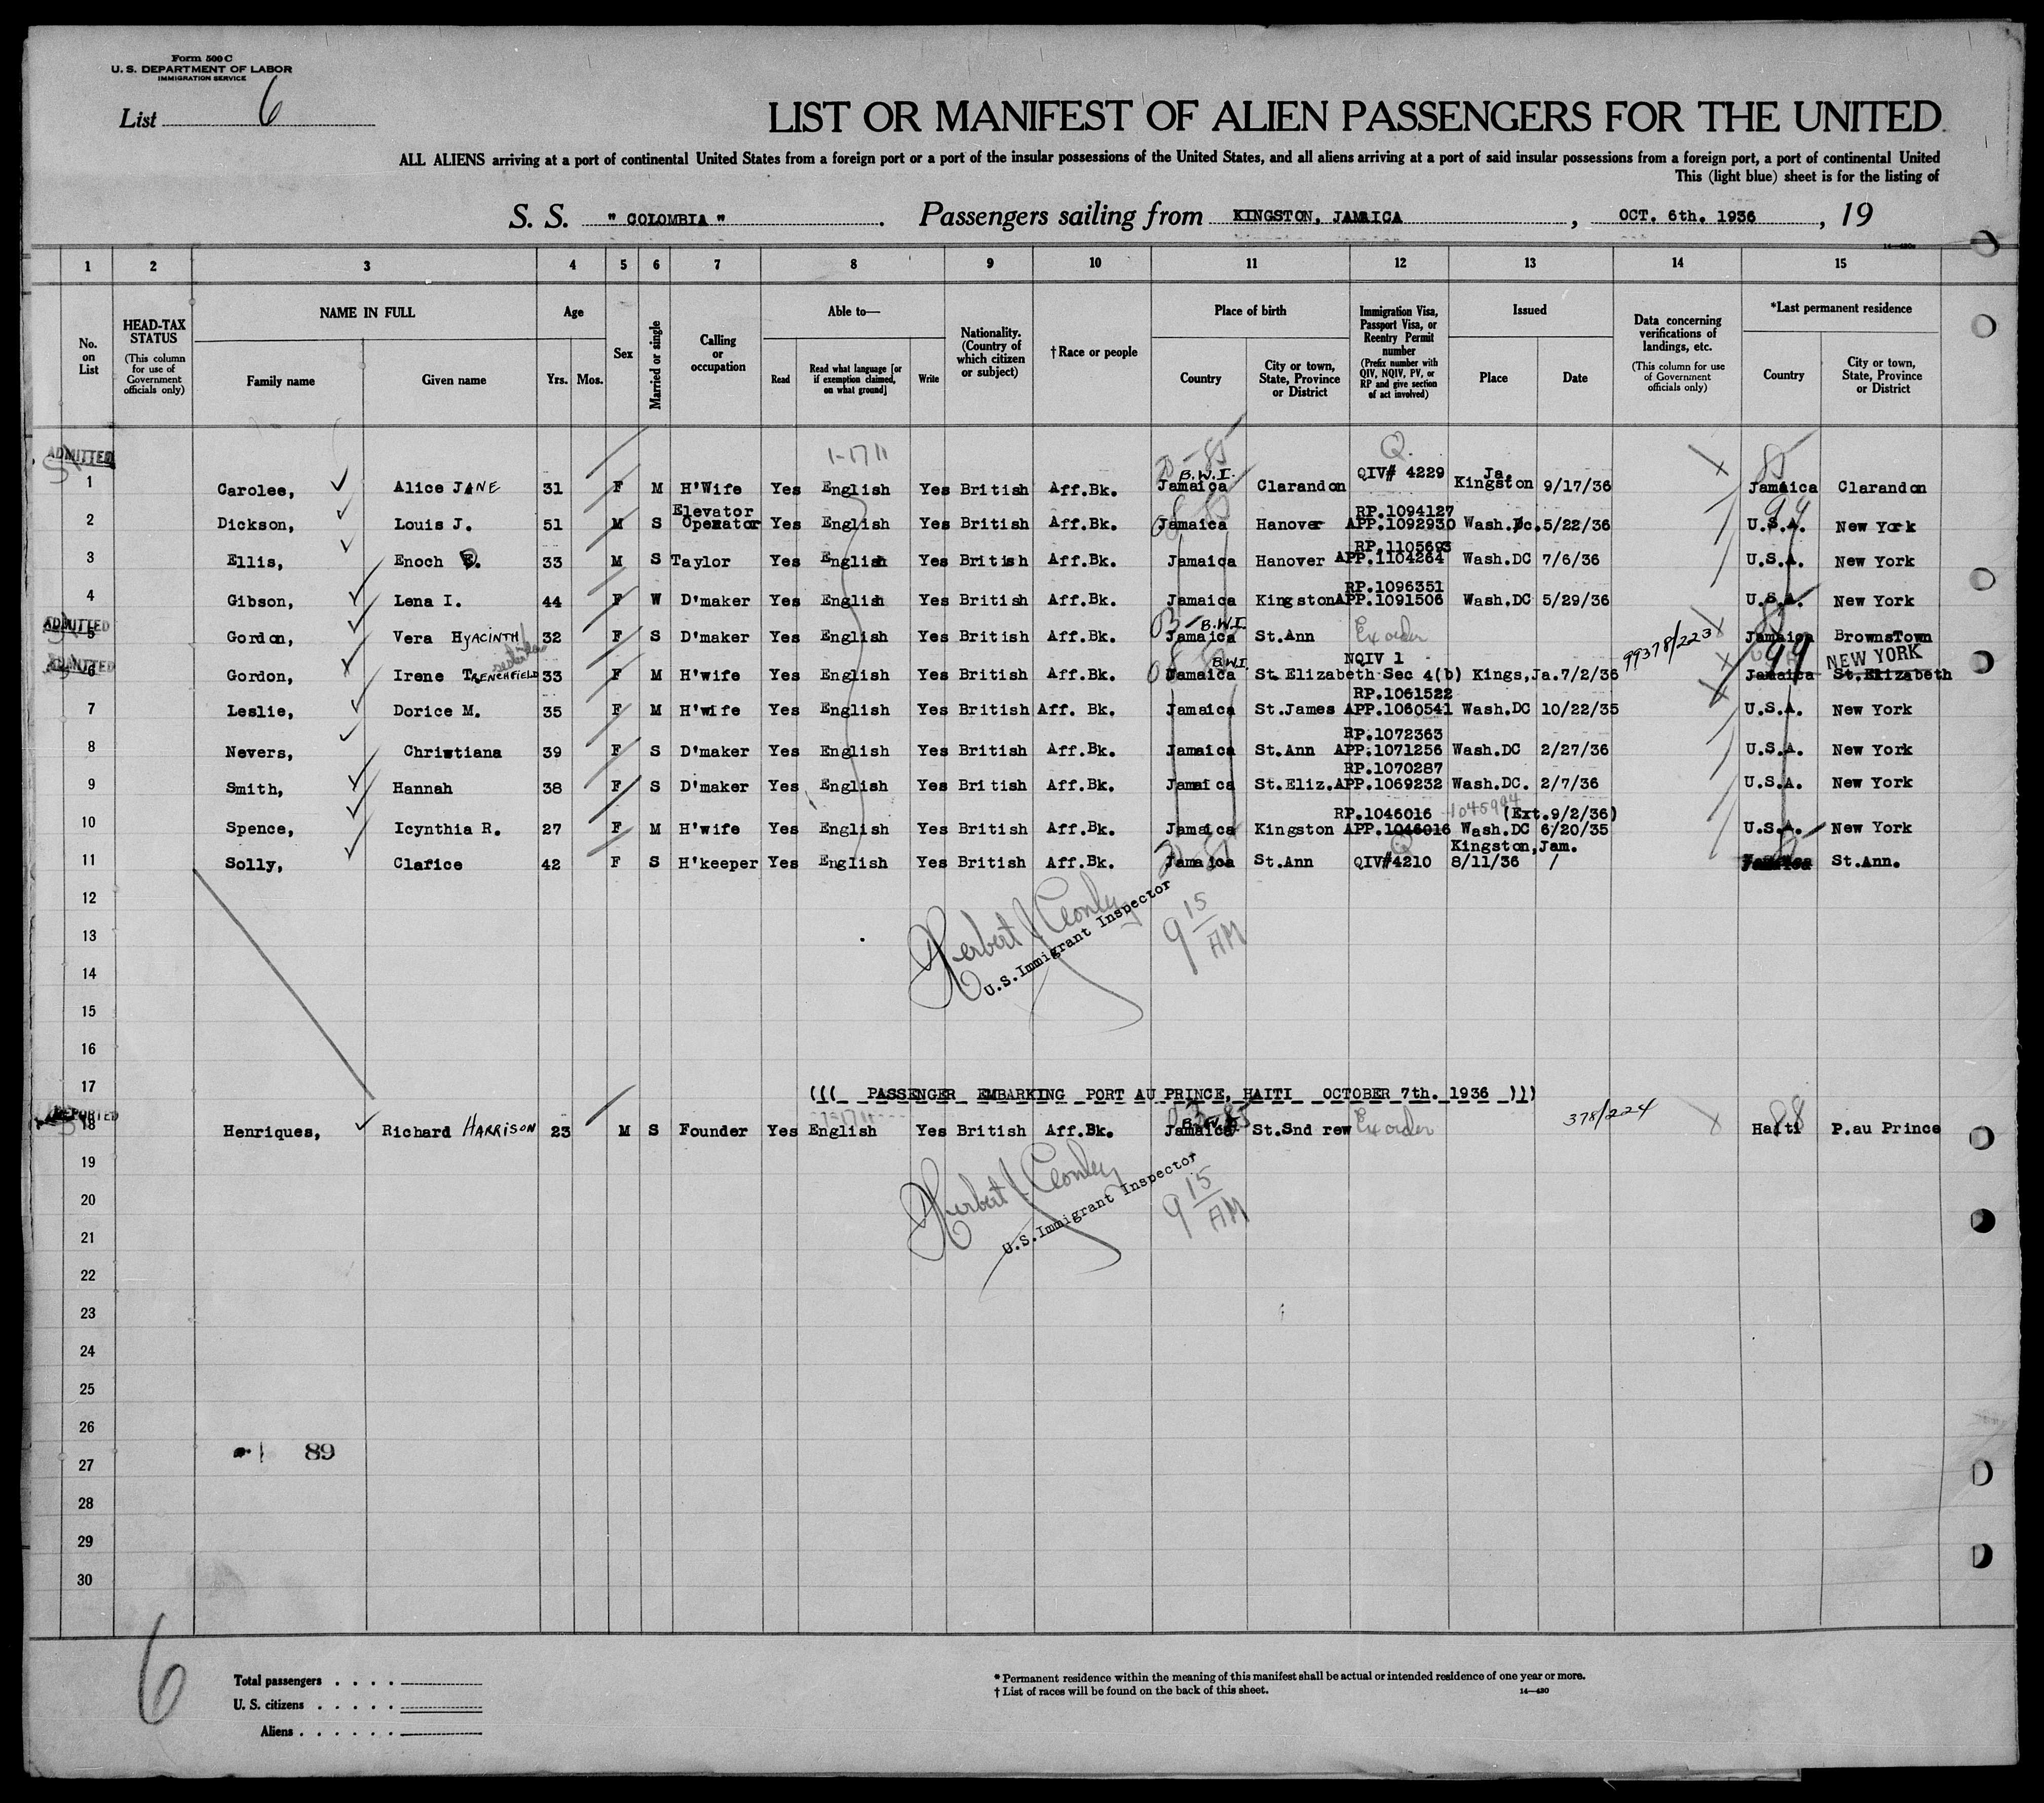 Form 500 C
U. S. DEPARTMENT OF LABOR
IMMIGRATION SERVICE
List 6
LIST OR MANIFEST OF ALIEN PASSENGERS FOR THE UNITED
ALL ALIENS arriving at a port of continental United States from a foreign port or a port of the insular possessions of the United States, and all aliens arriving at a port of said insular possessions from a foreign port, a port of continental United
This (light blue) sheet is for the listing of
S. S. " COLOMBIA ". Passengers sailing from KINGSTON, JAMAICA, OCT. 6th. 1936, 19
14—430a
1 2 3 4 5 6 7 8 9 10 11 12 13 14 15
No. on List
HEAD-TAX STATUS (This column for use of Government officials only)
NAME IN FULL Family name Given name
Age Yrs. Mos.
Sex
Married or single
Calling or occupation
Able to— Read Read what language [or if exemption claimed, on what ground] Write
Nationality. (Country of which citizen or subject)
†Race or people
Place of birth Country City or town, State, Province or District
Immigration Visa, Passport Visa, or Reentry Permit number (Prefix number with QIV, NQIV, PV, or RP and give section of act involved)
Issued Place Date
Data concerning verifications of landings, etc. (This column for use of Government officials only)
*Last permanent residence Country City or town, State, Province or District
ADMITTED 1-1711 Q.
1 Carolee, Alice JANE 31 F M H'Wife Yes English Yes British Aff.Bk. B.W.I. Jamaica Clarandon QIV# 4229 Ja. Kingston 9/17/36 Jamaica Clarandon
2 Dickson, Louis J. 51 M S Elevator Operator Yes English Yes British Aff.Bk. Jamaica Hanover RP.1094127 APP.1092930 Wash.Dc. 5/22/36 U.S.A. New York
3 Ellis, Enoch 33 M S Taylor Yes English Yes British Aff.Bk. Jamaica Hanover RP.1105693 APP.1104264 Wash.DC 7/6/36 U.S.A. New York
4 Gibson, Lena I. 44 F W D'maker Yes English Yes British Aff.Bk. Jamaica Kingston RP.1096351 APP.1091506 Wash.DC 5/29/36 U.S.A. New York
ADMITTED 5 Gordon, Vera HYACINTH 32 F S D'maker Yes English Yes British Aff.Bk. B.W.I. Jamaica St.Ann Ex order 99378/223 Jamaica BrownsTown
ADMITTED 6 Gordon, Irene TRENCHFIELD 33 F M H'wife Yes English Yes British Aff.Bk. B.W.I. Jamaica St. Elizabeth NQIV 1 Sec 4(b) Kings,Ja. 7/2/36 99 NEW YORK Jamaica St.Elizabeth
7 Leslie, Dorice M. 35 F M H'wife Yes English Yes British Aff. Bk. Jamaica St.James RP.1061522 APP.1060541 Wash.DC 10/22/35 U.S.A. New York
8 Nevers, Christiana 39 F S D'maker Yes English Yes British Aff.Bk. Jamaica St.Ann RP.1072363 APP.1071256 Wash.DC 2/27/36 U.S.A. New York
9 Smith, Hannah 38 F S D'maker Yes English Yes British Aff.Bk. Jamaica St.Eliz. RP.1070287 APP.1069232 Wash.DC. 2/7/36 U.S.A. New York
10 Spence, Icynthia R. 27 F M H'wife Yes English Yes British Aff.Bk. Jamaica Kingston RP.1046016 APP.1046016 1045994 (Ext.9/2/36) Wash.DC 6/20/35 U.S.A. New York
11 Solly, Clarice 42 F S H'keeper Yes English Yes British Aff.Bk. Jamaica St.Ann QIV#4210 Kingston,Jam. 8/11/36 / Jamaica St.Ann.
12
Herbert J Conley
U.S. Immigrant Inspector
9 15 AM
13
14
15
16
17 ((( PASSENGER EMBARKING PORT AU PRINCE, HAITI OCTOBER 7th. 1936 )))
18 Henriques, Richard HARRISON 23 M S Founder Yes English Yes British Aff.Bk. B.W.I. Jamaica St.Snd rew Ex order 378/224 88 Haiti P.au Prince
19
Herbert J Conley
U.S. Immigrant Inspector
9 15 AM
20
21
22
23
24
25
26
89
27
28
29
30
6
Total passengers . . . .
U. S. citizens . . . . .
Aliens . . . . . .
* Permanent residence within the meaning of this manifest shall be actual or intended residence of one year or more.
† List of races will be found on the back of this sheet.
14—430